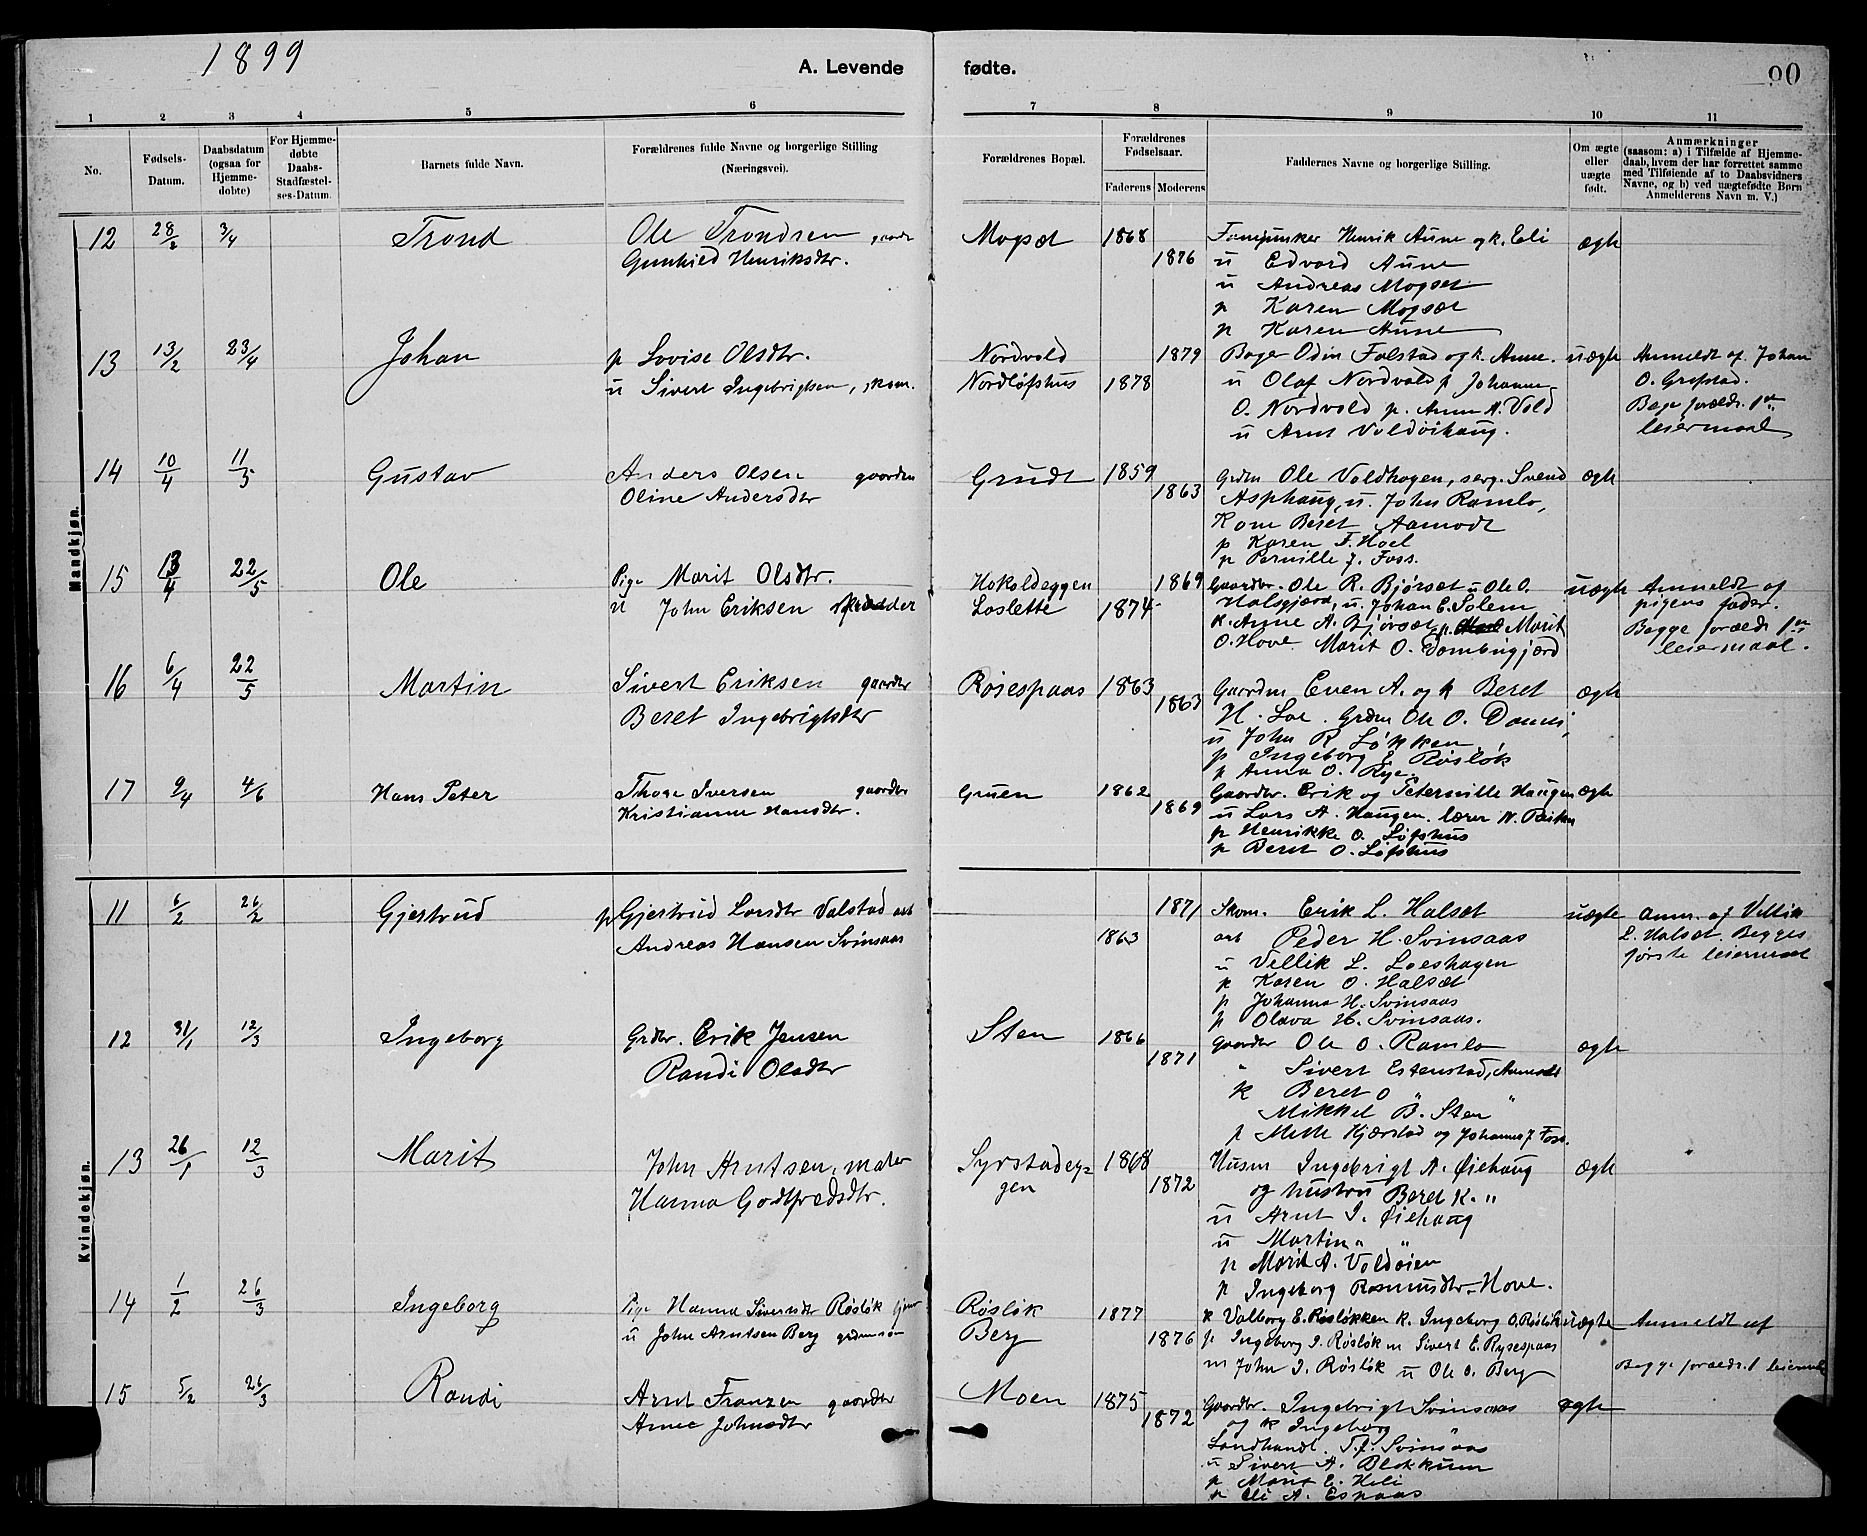 1899
A. Levende fødte.
90
1 2 3 4 5 6 7 8 9 10 11
No.
Fødsels-Datum.
Daabsdatum (ogsaa for Hjemme-døbte)
For Hjemme-døbte Daabs-Stadfæstel-ses-Datum.
Barnets fulde Navn.
Forældrenes fulde Navne og borgerlige Stilling (Næringsvei).
Forældrenes Bopæl.
Forældrenes Fødselsaar.
Faderens Moderens
Faddernes Navne og borgerlige Stilling.
Om ægte eller uægte født.
Anmærkninger
(saasom: a) i Tilfælde af Hjemme-
daab, hvem der har forrettet samme
med Tilføiende af to Daabsvidners
Navne, og b) ved uægtefødte Børn
Anmelderens Navn m. V.)
Mandkjøn.
12 28/2 3/4 Trond Ole Trondsen Mogset 1868 Henrik Aune og k. Eli ægte
Gunhild Henriksdtr. 1876 u Edvard Aune
u Andreas Mogset
p Karen Mogset
p Karen Aune
13 13/2 23/4 Johan p Lovise Olsdtr. Nordvold 1879 Bager Odin Falstad og k. Anne. uægte Anmeldt af Johan
u Sivert Ingebrigtsen, skom. Nordløfshus 1878 u Olaf Nordvold p Johanne O. Grefstad.
O. Nordvold p. Anne A. Vold Begge foræld. 1ste
u Arnt Voldøihaug. leiermaal
14 10/4 11/5 Gustav Anders Olsen gaardm Grudt 1859 Grdm Ole Voldhagen, serg. Svend ægte
Oline Andersdtr 1863 Asphaug, u. John Ramlo,
Kone Beret Aamodt
p Karen F. Hoel
p Pernille J. Foss.
15 13/4 22/5 Ole Pige Marit Olsdtr. Hokoldeggen 1869 Gaardbr. Ole R. Bjørset u Ole O. uægte Anmeldt af
u John Eriksen skrædder Loslette 1874 Halsgjærd, u. Johan E. Solem pigens fader.
k. Anne A. Bjørset p. Marit Begge foræld 1ste
O. Hove. Marit O. leiermaal.
16 6/4 22/5 Martin Sivert Eriksen gaardbr Røsespaas 1863 Gaardm Even A. og k Beret ægte
Beret Ingebrigtsdtr 1863 H. Loe. Grdm Ole O.
u John R Løkken
p Ingeborg E Røsløk
p Anna O. Rye.
17 9/4 4/6 Hans Peter Thore Iversen gaardbr Gruen 1862 Gaardbr. Erik og Peternille Haugen ægte
Kristianne Hansdtr. 1869 u Lars A. Haugen. lærer N.
p Henrikke O. Løfshus
p Beret O. Løfshus
Kvindekjøn.
11 6/2 26/2 Gjertrud p Gjertrud Larsdtr Valstad 1871 Skom. Erik L. Halset uægte anm. af Vellik
Andreas Hansen Svinsaas 1863 arb Peder H. Svinsaas L. Halset. Begges
u Vellik L. Loeshagen første leiermaal
p Karen O. Halset
p Johanna H. Svinsaas
p Olava H. Svinsaas.
12 31/1 12/3 Ingeborg Grdbr. Erik Jensen Sten 1866 Gaardbr Ole O. Ramlo ægte
Randi Olsdtr 1871 " Sivert Estenstad, Aamodt
k Beret O " "
Mikkel B. Sten
p Mette Kjærstad og Johannes J Foss.
13 26/1 12/3 Marit John Arntsen, maler Syrstadeg- 1868 Husm Ingebrigt A. Øiehaug ægte
Hanna Godtfredsdtr. gen 1872 og hustru Beret K. "
u Arnt I. Øiehaug
u Martin " "
p Marit A. Voldøien
p Ingeborg Rasmusdtr. Hove.
14 1/2 26/3 Ingeborg Pige Hanna Siversdtr Røsløk Røsløk 1877 k Valborg E. Røsløkken k. Ingeborg O. Røsløk uægte Anmeldt af
u John Arntsen Berg Berg 1876 p Ingeborg I. Røsløk m Sivert E. Rysespaas
m John I. Røsløk u Ole O. Berg Begge foræld. 1 leiermaal
15 5/2 26/3 Randi Arnt Franzen gaardbr Moen 1875 Gaardbr. Ingebrigt Svinsaas ægte
Anne Johnsdtr 1872 og k Ingeborg "
Landhandl. T. J. Svinsaas
u Sivert A. Blokkum
p Marit E. Heli
p Eli A. Espaas